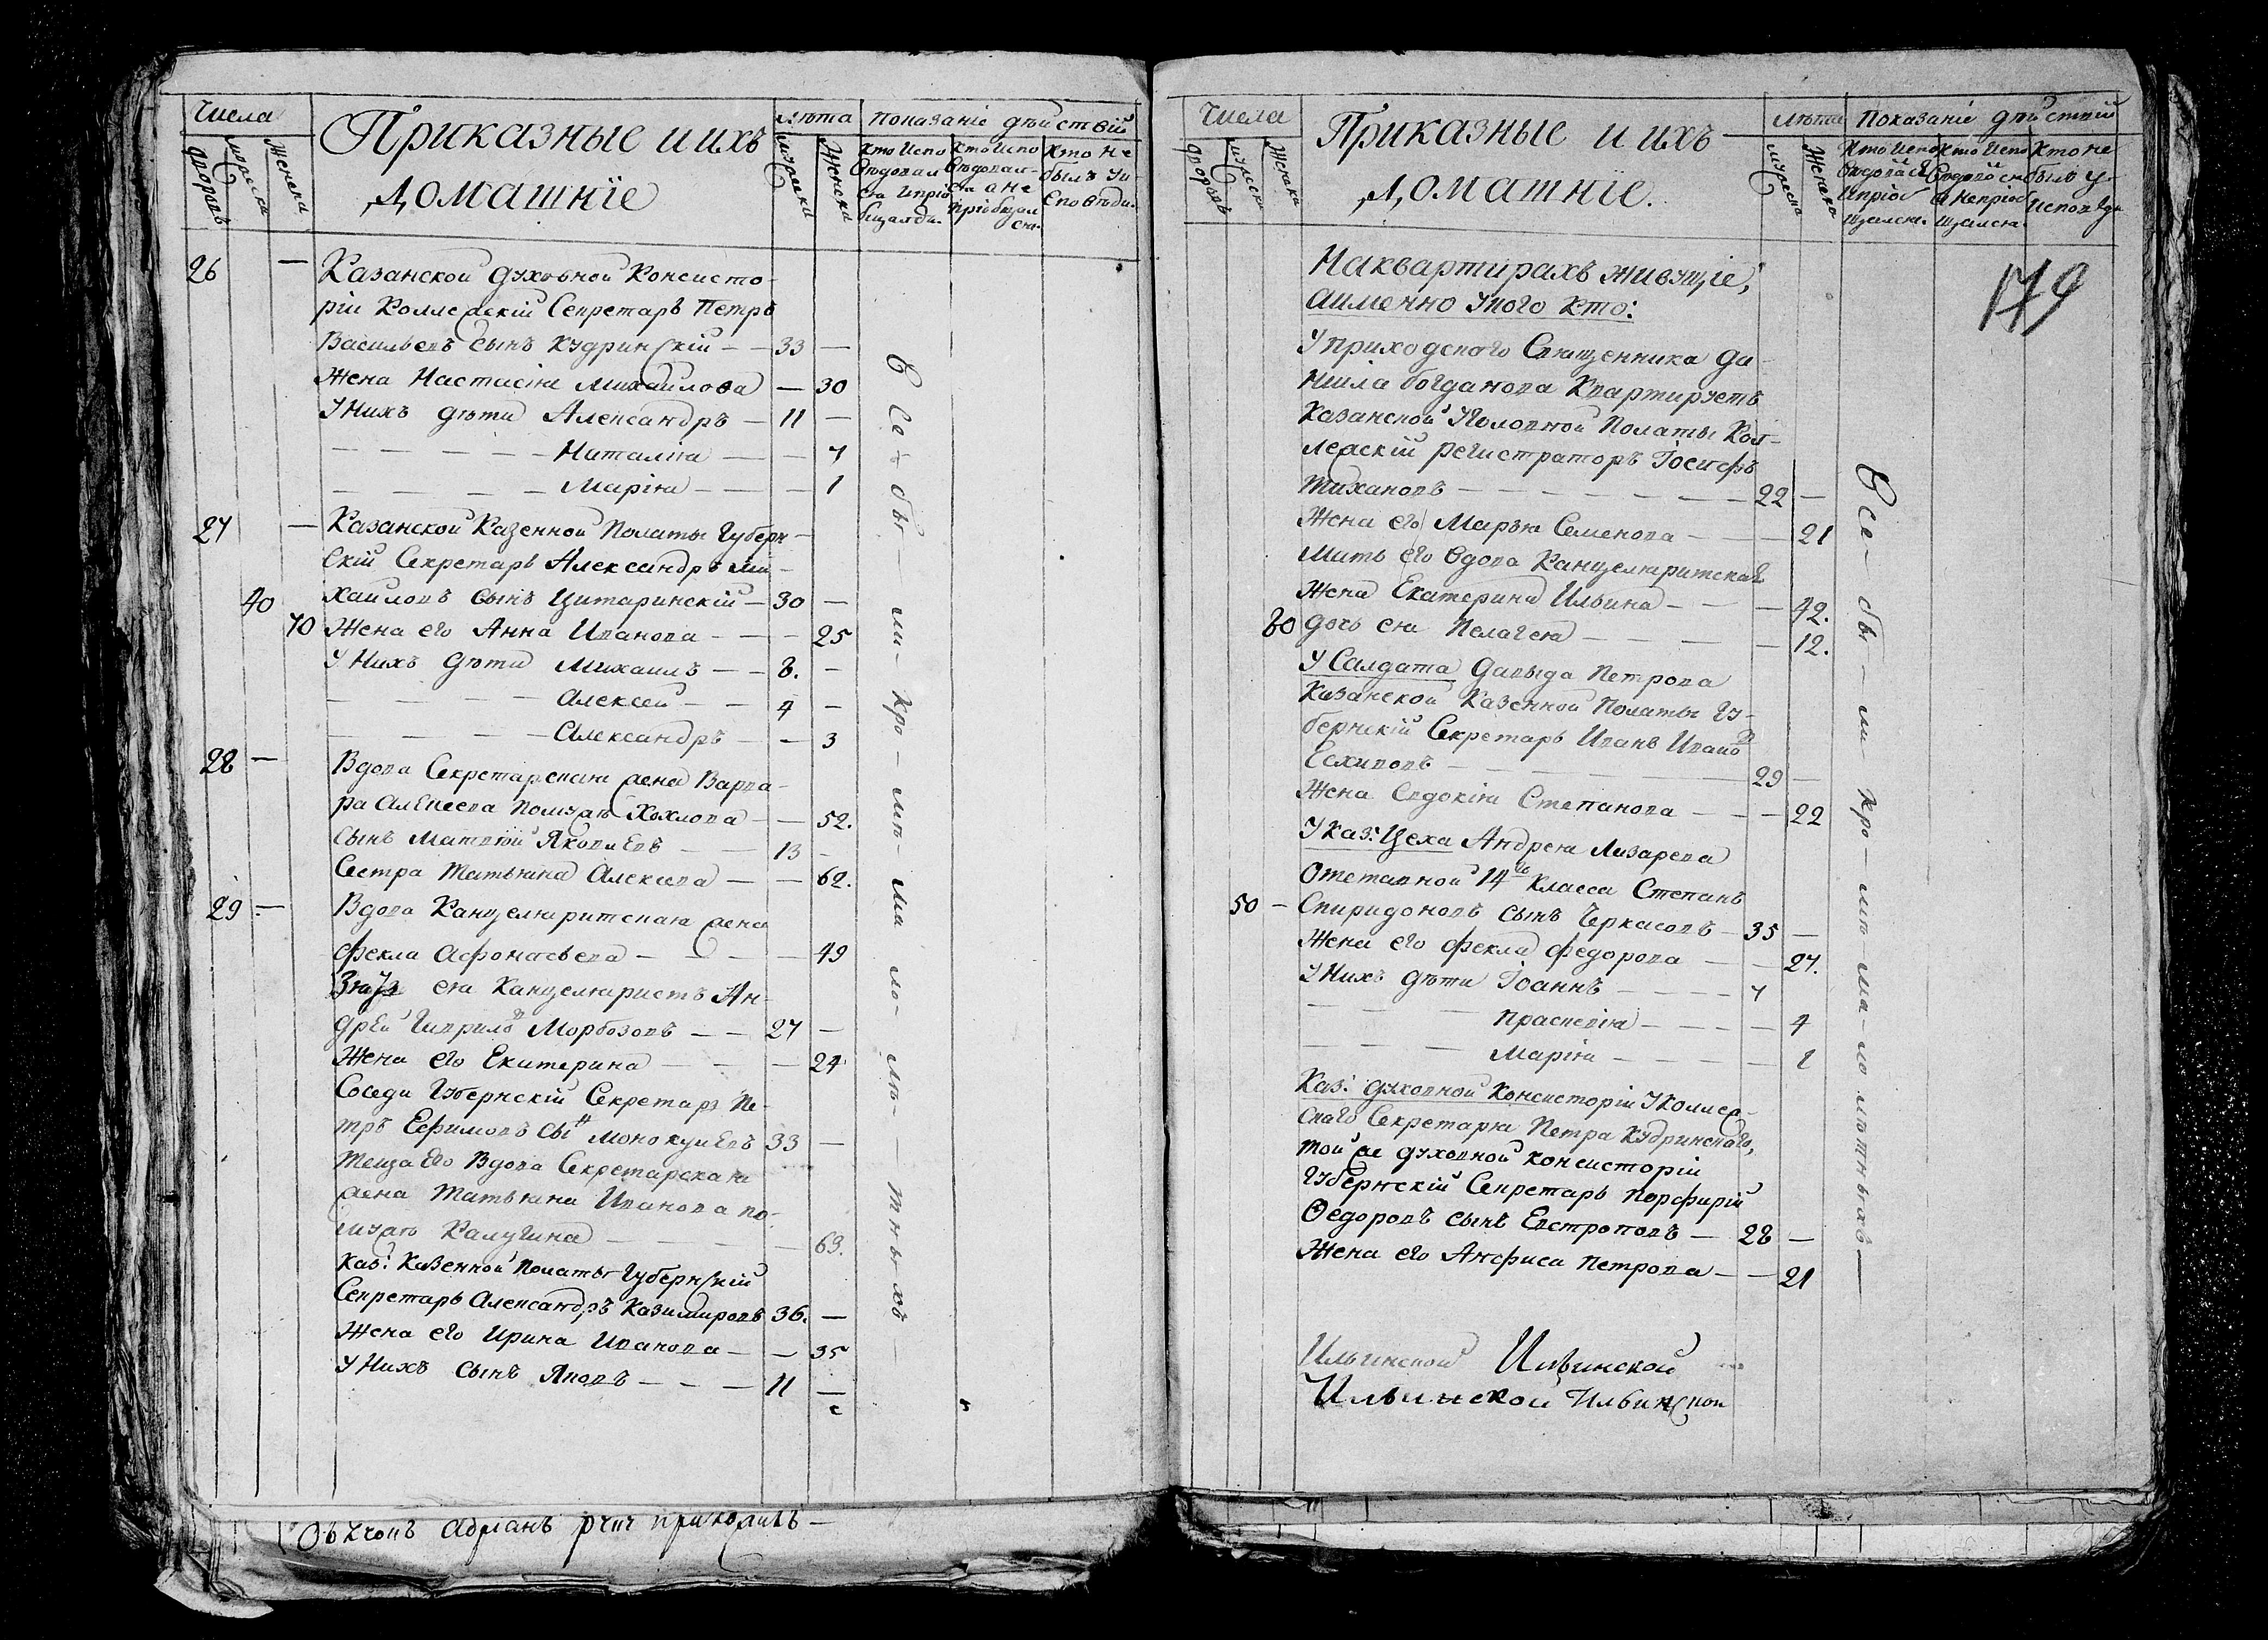 Числа
Приказные и ихъ
домашнїе
лѣта
Показанїе дѣйствїй
дворовъ
мужеска
женска
мужеска
женска
Кто испо
вѣдовал
ся и прїо
бщалъся
Кто испо
вѣдовал-
ся а не
прїобщал
ся.
Кто не
былъ у и
споведи.
26 — Казанской духовной Консисто-
рїи Коллежскїй Секретарь Петръ
Васильевъ сынъ Кудринскїй — 33 —
Жена Настасїя Михайлова — 30
У нихъ дѣти Александръ — 11 —
Наталїя — 7
Марїя — 1
27 — Казанской Казенной Полаты Губерн-
скїй Секретарь Александръ Ми-
40 хаиловъ сынъ Цитаринскїй — 30 —
70 Жена его Анна Иванова — 25
У нихъ дѣти Михаилъ — 8. —
Алексей — 4 —
Александръ — 3
28 — Вдова Секретарская жена Варва-
ра Алексеева помужѣ Хохлова — 52.
сынъ Матвїй Яковлевъ — 13 —
Сестра Татьяна Алексева — 62.
29 — Вдова Канцеляритская жена
Фекла Афонасьева — 49
Зять ея Канцеляристъ Ан-
дрей Гаврило Морбозовъ — 27 —
Жена его Екатерина — 24
Соседи Губернскїй Секретарь Пе-
тръ Ефимовъ сынъ Монокулевъ 33 —
теща его Вдова Секретарская
жена Татьяна Иванова по-
мужѣ Калугина — 63.
Каз: Казенной Полаты Губернскїй
Секретарь Александръ Казимировъ 36. —
Жена его Ирина Иванова — 35
У нихъ сынъ Яковъ — 11 —
Все — бы — ли — кро — мѣ — ма — ло — лѣ — тныхъ
Адрианъ
Числа
Приказные и ихъ
домашнїе.
лѣта
Показанїе дѣйствїй
дворовъ
мужеска
женска
мужеска
женска
Кто испо
вѣдовался
и прїоб
щался.
Кто испо
вѣдовался
а не прїоб
щался.
Кто не
былъ у
исповѣди
179
На квартирахъ живущїе,
а именно у кого кто:
У приходского Священника Да-
нїила Богданова квартируетъ
Казанской Уголовной Полаты Кол-
лежскїй регистраторъ Іосифъ
Тихановъ — 22 —
Жена его Марья Семенова — 21
Мать его вдова Канцеляритская
Жена Екатерина Ильина — 42.
80 дочь ея Пелагея — 12.
У Салдата Давыда Петрова
Казанской Казенной Полаты Гу-
бернскїй Секретарь Иванъ Ивано
Есиповъ — 29 —
Жена Евдокїя Степанова — 22
У Каз: Цеха Андрея Лазарева
Отставной 14го класса Степанъ
50 — Спиридоновъ сынъ Черкасовъ — 35 —
Жена его Фекла Федорова — 27.
У нихъ дѣти Іоаннъ — 7
Прасковїя — 4
Марїя — 1
Каз: духовной Консисторїи у Коллеж-
скаго Секретаря Петра Кудринскаго,
той же духовной консисторїи
Губернскїй Секретарь Порфирїй
Ѳедоровъ сынъ Евстроповъ — 28 —
Жена его Анфиса Петрова — 21
Все — бы — ли кро — мѣ — ма — ло лѣтныхъ —
Ильинской Ильинской
Ильинской Ильинской